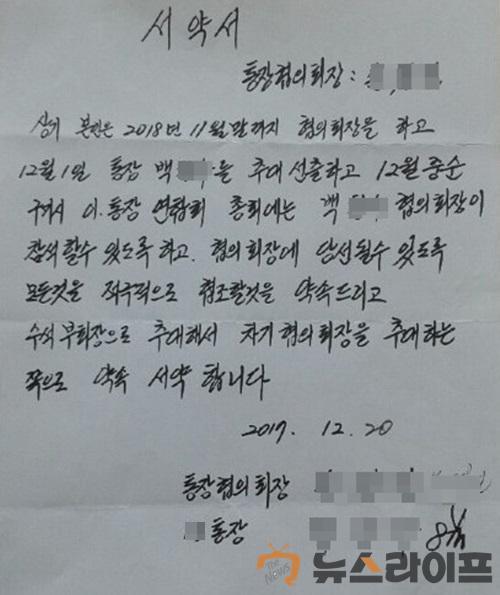 서약서
통장협의회장 :
상기 본인은 2018년 11월말까지 협의회장을 하고
12월1일 통장 백 를 추대 선출하고 12월중순
구리시 이.통장 연합회 총회에는 백 협의회장이
참석할수 있도록 하고. 협의회장에 당선될수 있도록
모든것을 적극적으로 협조할것을 약속드리고
수석부회장으로 추대해서 차기협의회장을 추대하는
쪽으로 약속 서약 합니다
2017. 12. 20
통장협의회장
통장
The News 뉴스라이프